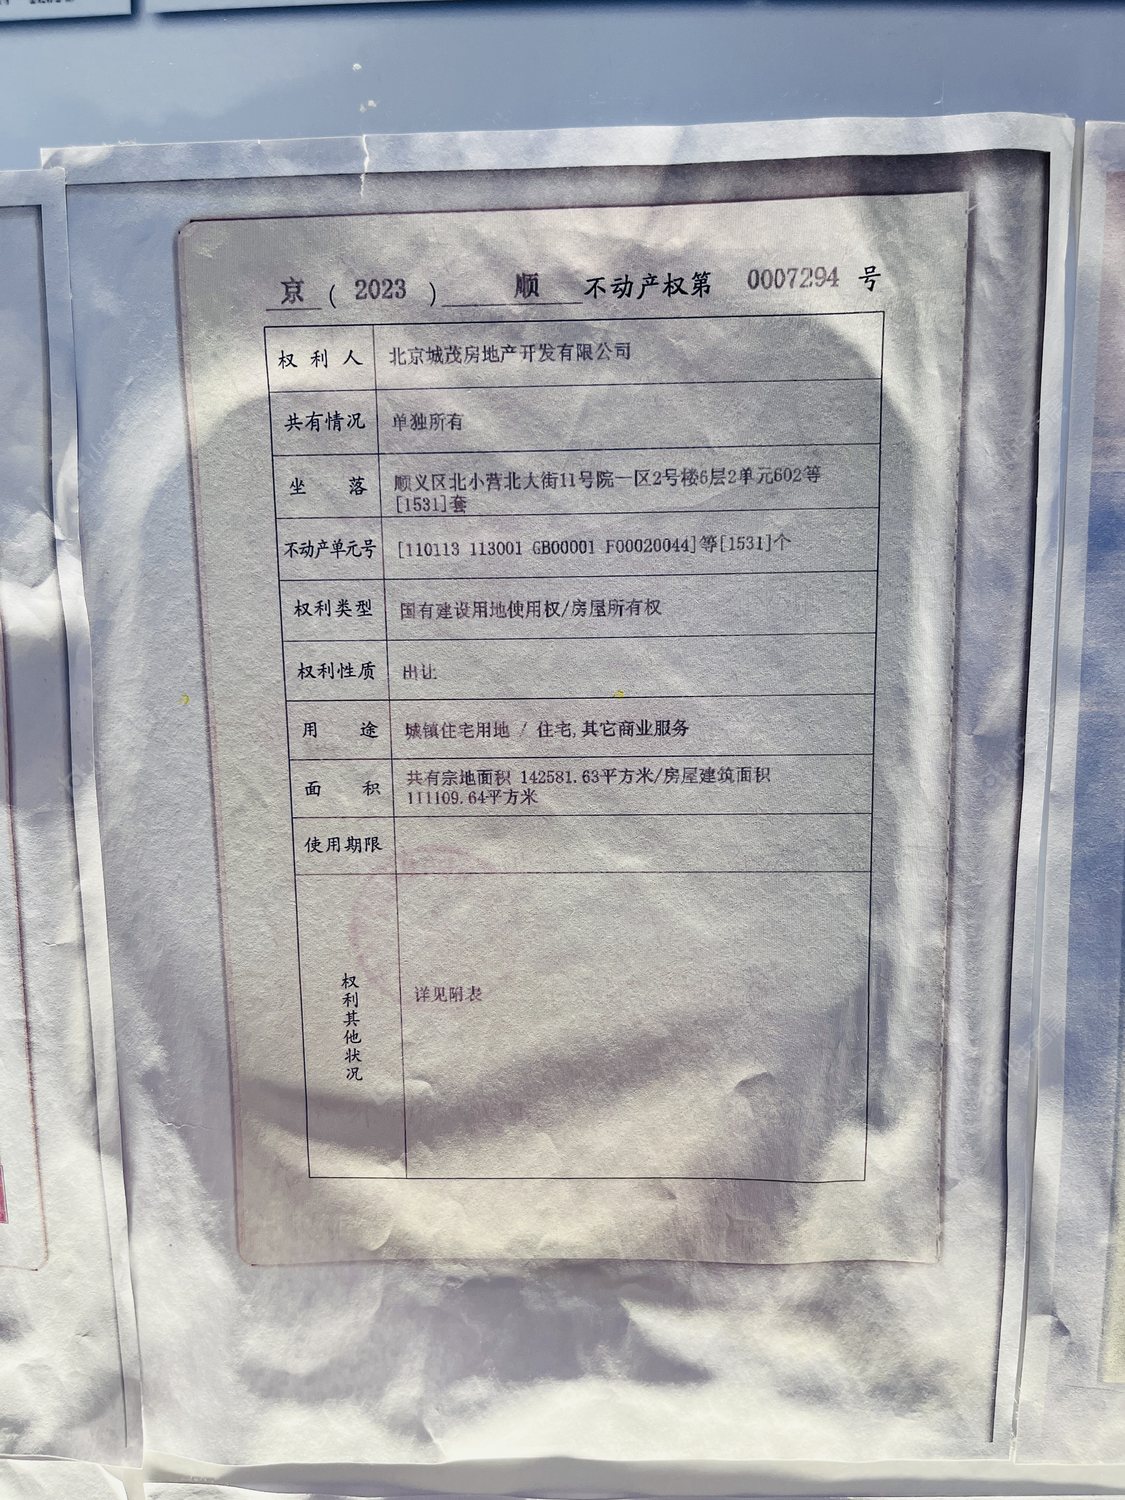 京 ( 2023 ) 顺 不动产权第 0007294 号
权利人 北京城茂房地产开发有限公司
共有情况 单独所有
坐落 顺义区北小营北大街11号院一区2号楼6层2单元602等
[1531]套
不动产单元号 [110113 113001 GB00001 F00020044]等[1531]个
权利类型 国有建设用地使用权/房屋所有权
权利性质 出让
用途 城镇住宅用地 / 住宅,其它商业服务
面积 共有宗地面积 142581.63平方米/房屋建筑面积
111109.64平方米
使用期限
权利其他状况 详见附表